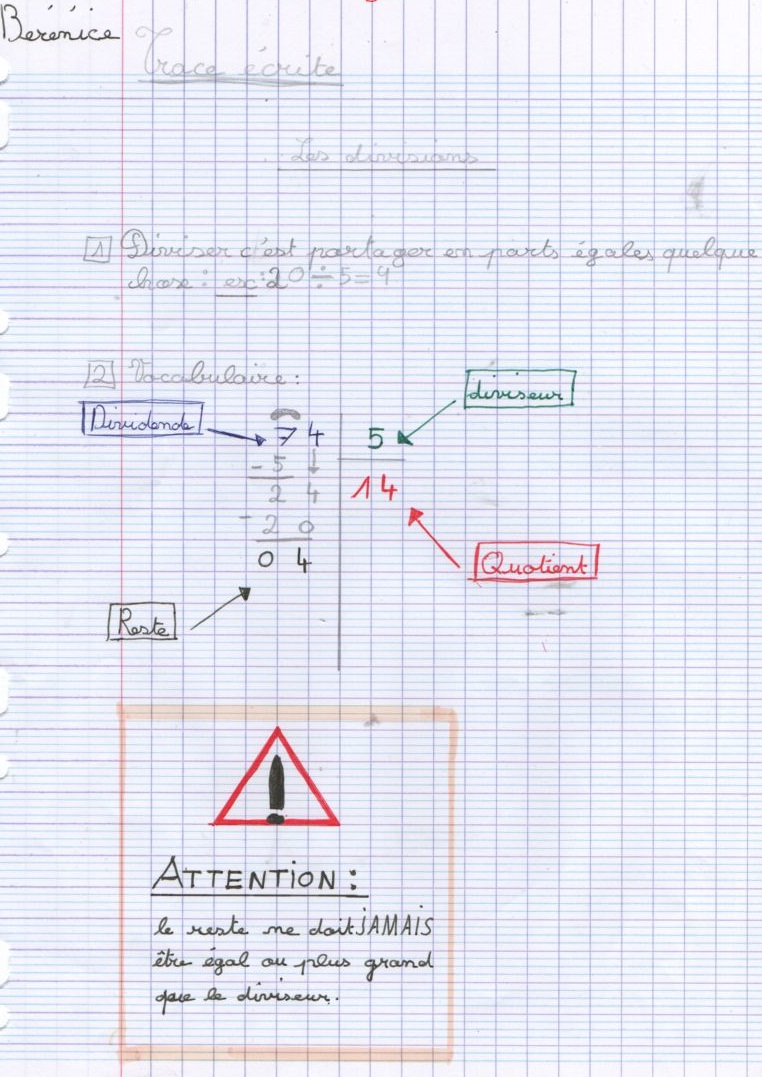 Bérénice
Trace écrite
Les divisions
1 Diviser c'est partager en parts égales quelque
chose : ex : 20 ÷ 5 = 4
2 Vocabulaire :
diviseur
Dividende
74 5
- 5
2 4 14
- 2 0
0 4
Quotient
Reste
ATTENTION :
le reste ne doit JAMAIS
être égal ou plus grand
que le diviseur.